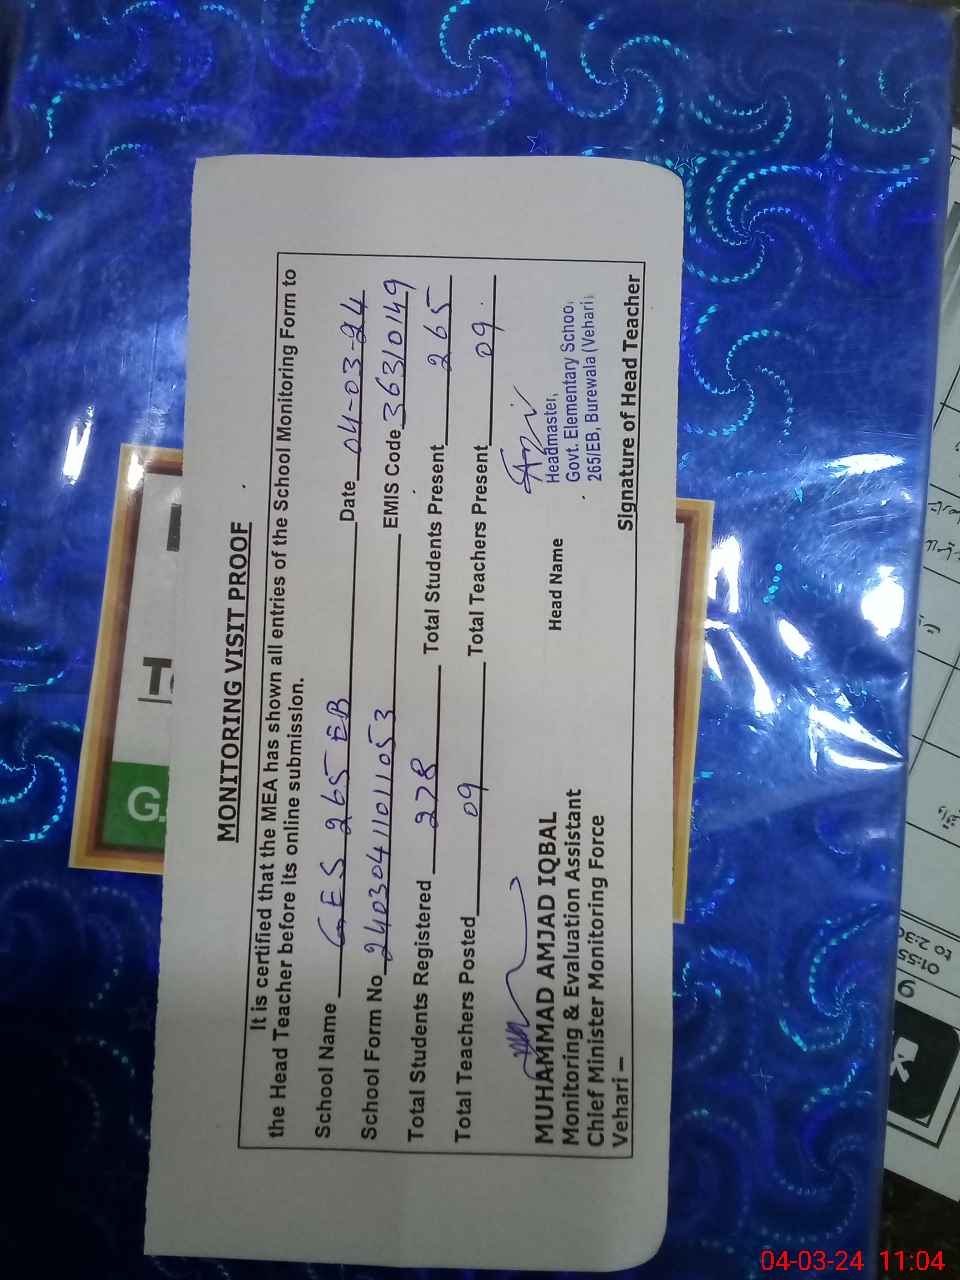 MONITORING VISIT PROOF
It is certified that the MEA has shown all entries of the School Monitoring Form to
the Head Teacher before its online submission.
School Name GES 265 EB Date 04-03-24
School Form No 24030411011053 EMIS Code 36310149
Total Students Registered 278 Total Students Present 265
Total Teachers Posted 09 Total Teachers Present 09
MUHAMMAD AMJAD IQBAL
Monitoring & Evaluation Assistant
Chief Minister Monitoring Force
Vehari –
Head Name
Headmaster,
Govt. Elementary School
265/EB, Burewala (Vehari)
Signature of Head Teacher
G.
01:55
to 2:30
9
04-03-24 11:04